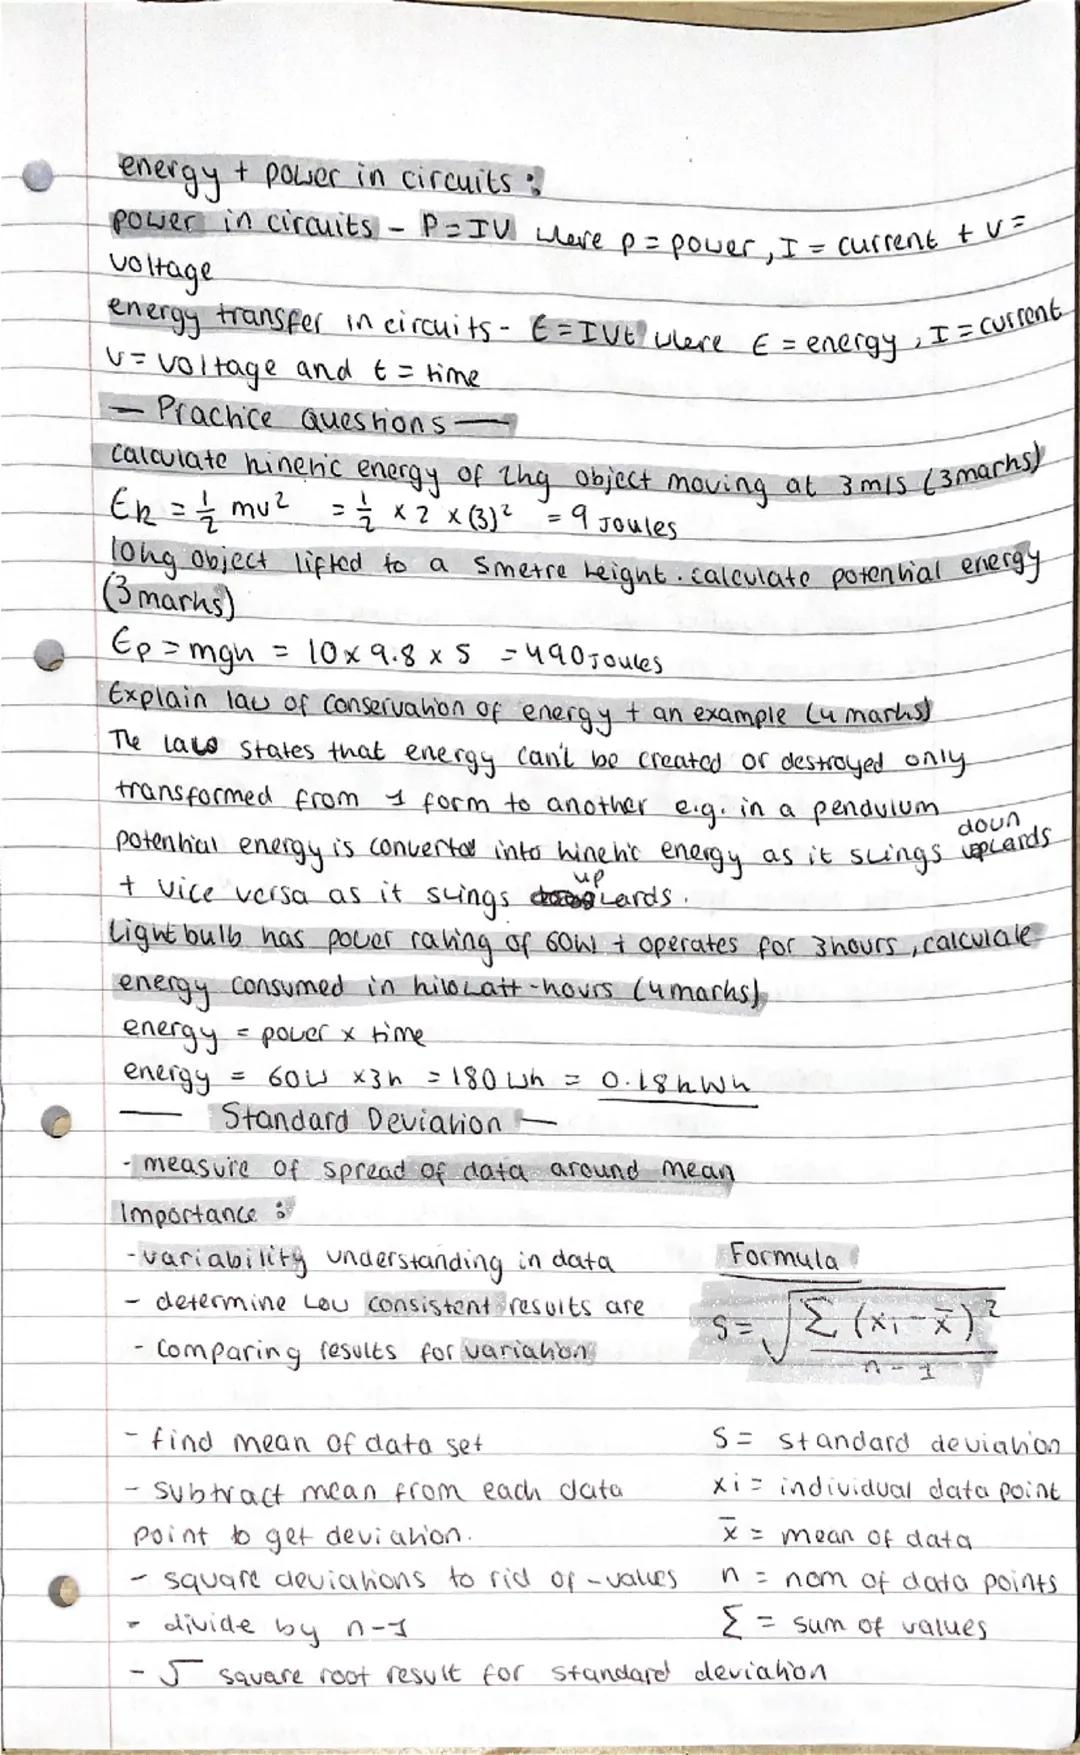 energy + power in circuits :
power in circuits - P=IV where p = power, I = current + V =
voltage
energy transfer in circuits - E=IVt where E = energy, I = current
V = voltage and t = time
— Practice Questions —
calculate kinetic energy of 2kg object moving at 3m/s (3marks)
Ek = 1/2 mv² = 1/2 × 2 × (3)² = 9 Joules
10kg object lifted to a 5metre height. calculate potential energy
(3marks)
Ep = mgh = 10 × 9.8 × 5 = 490 Joules
Explain law of conservation of energy + an example (4 marks)
The law states that energy can't be created or destroyed only
transformed from 1 form to another e.g. in a pendulum
potential energy is converted into kinetic energy as it swings downwards
+ vice versa as it swings upwards.
Lightbulb has power rating of 60W + operates for 3hours, calculate
energy consumed in kilowatt-hours (4marks)
energy = power × time
energy = 60W × 3h = 180Wh = 0.18kWh
— Standard Deviation —
- measure of spread of data around mean
Importance :
- variability understanding in data
- determine how consistent results are
- comparing results for variation
Formula
S = √ Σ (xi - x̄)² / n - 1
- find mean of data set
- subtract mean from each data
point to get deviation.
- square deviations to rid of - values
- divide by n-1
- √ square root result for standard deviation
S = standard deviation
xi = individual data point
x̄ = mean of data
n = nom of data points
Σ = sum of values